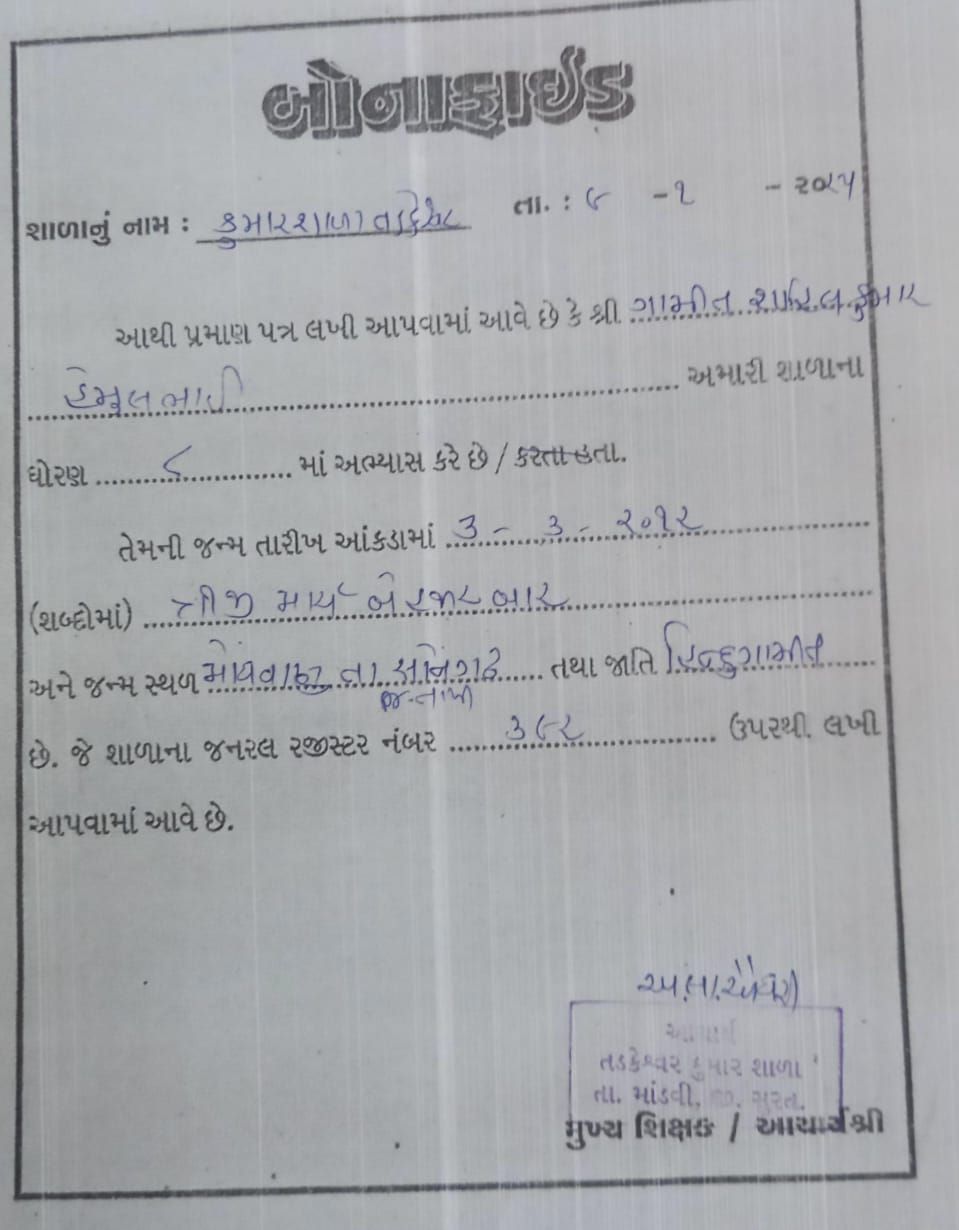 બોનાફાઈડ
શાળાનું નામ : કુમારશાળા તડકેશ્વર તા. : ૯ -૧ - ૨૦૨૫
આથી પ્રમાણ પત્ર લખી આપવામાં આવે છે કે શ્રી ગામીત
અમારી શાળાના
ધોરણ ૮ માં અભ્યાસ કરે છે / કરતા હતા.
તેમની જન્મ તારીખ આંકડામાં ૩ - ૩ - ૨૦૧૨
(શબ્દોમાં) ત્રીજી માર્ચ બે હજાર બાર
અને જન્મ સ્થળ તા તથા જાતિ હિન્દુગામીત
જી-તાપી
છે. જે શાળાના જનરલ રજીસ્ટર નંબર ૩૯૨ ઉપરથી લખી
આપવામાં આવે છે.
આચાર્ય
તડકેશ્વર કુમાર શાળા
તા. માંડવી, જી. સુરત.
મુખ્ય શિક્ષક / આચાર્યશ્રી